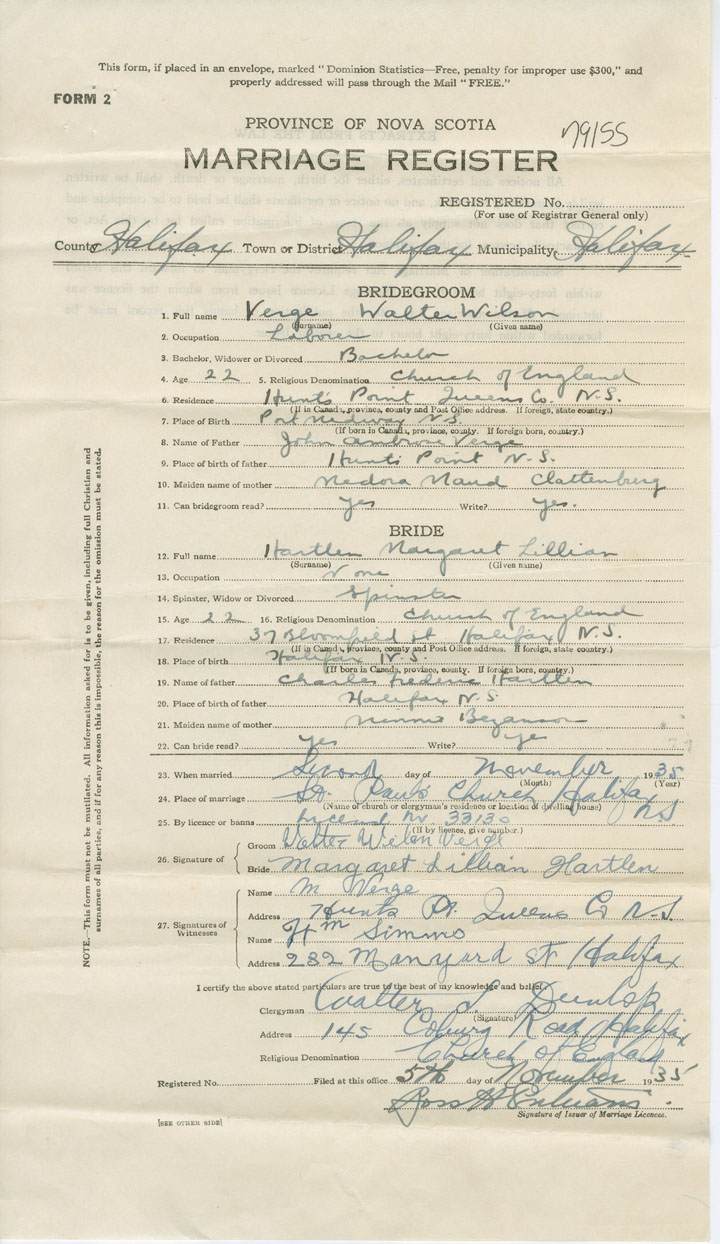 This form, if placed in an envelope, marked "Dominion Statistics—Free, penalty for improper use $300," and
properly addressed will pass through the Mail "FREE."
FORM 2
PROVINCE OF NOVA SCOTIA
MARRIAGE REGISTER
REGISTERED No.
(For use of Registrar General only)
County Halifax Town or District Halifax Municipality Halifax
BRIDEGROOM
1. Full name Verge Walter Wilson
(Surname) (Given name)
2. Occupation Laborer
3. Bachelor, Widower or Divorced Bachelor
4. Age 22 5. Religious Denomination Church of England
6. Residence Hunts Point Queens Co. N.S.
(If is Canada, province, county and Post Office address. If foreign, state country.)
7. Place of Birth Port Medway N.S.
(If born in Canada, province, county. If foreign born, country.)
8. Name of Father John Ambrose Verge
9. Place of birth of father Hunts Point N.S.
10. Maiden name of mother Medora Maud Clattenburg
11. Can bridegroom read? Yes Write? Yes.
BRIDE
12. Full name Hartlen Margaret Lillian
(Surname) (Given name)
13. Occupation None
14. Spinster, Widow or Divorced Spinster
15. Age 22 16. Religious Denomination Church of England
17. Residence 37 Bloomfield St Halifax N.S.
(If is Canada, province, county and Post Office address. If foreign, state country.)
18. Place of birth Halifax N.S.
(If born in Canada, province, county. If foreign born, country.)
19. Name of father Charles Frederic Hartlen
20. Place of birth of father Halifax N.S.
21. Maiden name of mother Minnie Bezanson
22. Can bride read? Yes Write? Yes
23. When married Second day of November 1935
(Month) (Year)
24. Place of marriage St. Pauls Church Halifax
(Name of church or clergyman's residence or location of dwelling house) N.S.
25. By licence or banns Licence No 33130
(If by licence, give number.)
26. Signature of
Groom Walter Wilson Verge
Bride Margaret Lillian Hartlen
27. Signatures of Witnesses
Name M Verge
Address Hunts Pt. Queens Co N.S.
Name Simms
Address 282 Maynard St Halifax
I certify the above stated particulars are true to the best of my knowledge and belief.
Clergyman Walter Dunlop
(Signature)
Address 145 Coburg Road Halifax
Religious Denomination Church of England
Registered No. Filed at this office 5th day of November 1935
Signature of Issuer of Marriage Licences.
[SEE OTHER SIDE]
NOTE.—This form must not be mutilated. All information asked for is to be given, including full Christian and
surnames of all parties, and if for any reason this is impossible, the reason for the omission must be stated.